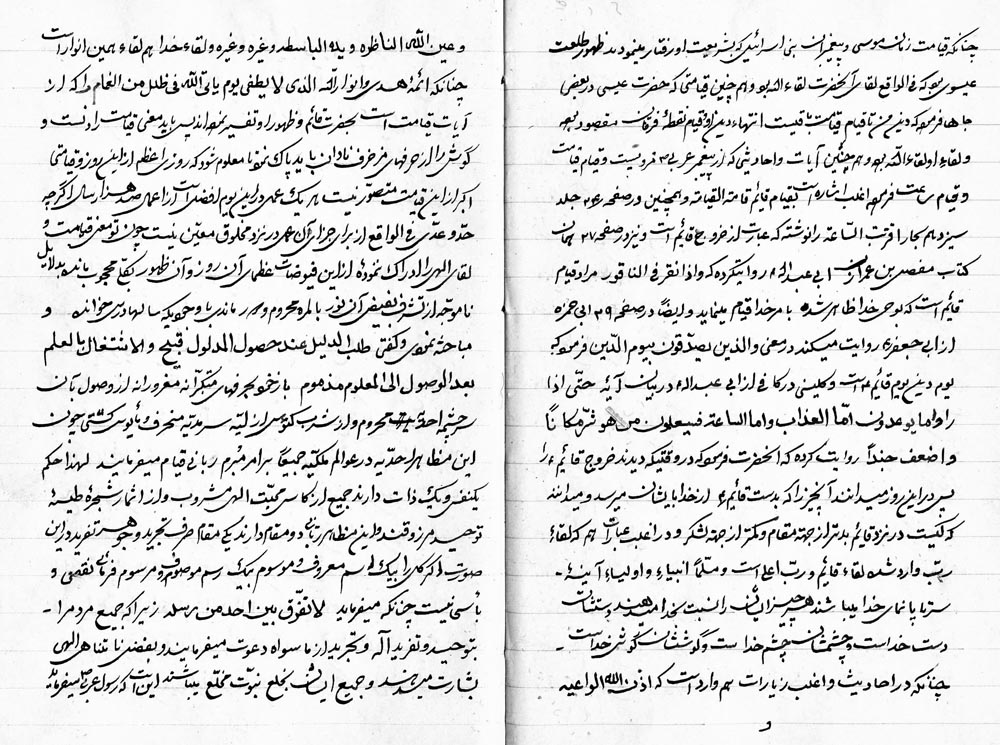 چنانکه قیامت زمان موسی و پیغمبران بنی اسرائیل که بشریعت او رفتار مینمودند ظهور طلعت
عیسوی بود که فی الواقع لقای آنحضرت لقاء الله بود و همچنین قیامتی که حضرت عیسی در بعض
جاها فرموده که دین من تا قیام قیامت باقیست انتهاء دین او قیام نقطهٔ فرقان مقصود بود
و لقاء او لقاء الله بود و همچنین آیات و احادیثی که از پیغمبر عربی مرویست و قیام قیامت
و قیام ساعت فرموده اغلب اشاره است بقیام قائم قامة القیامة و همچنین در صفحه جلد
سیزدهم بحار اقتربت الساعة را نوشته که عبارت از خروج قائم است و نیز در صفحه ۲۷ همان
کتاب مفضل بن عمر از ابی عبدالله روایتکرده که و اذا نقر فی الناقور مراد قیام
قائم است که بوحی خدا ظاهر شده بامر خدا قیام مینماید و ایضاً در صفحه ۳۹ ابی حمزه
از ابی جعفر روایت میکند در معنی و الذین یصدّقون بیوم الدّین فرموده که
یوم دین یوم قائم است و کلینی در کافی از ابی عبدالله در بیان آیهٔ حتّی اذا
راوا ما یوعدون امّا العذاب و اما الساعة فسیعلمون من هو شرّ مکاناً
و اضعف جنداً روایت کرده که آنحضرت فرموده که در وقتیکه دیدند خروج قائم را
پس در این روز میدانند آنچیز را که بدست قائم از خدا بایشان میرسد و میدانند
که کیست در نزد قائم بدتر از جهة مقام و کمتر از جهة لشکر و در اغلب عبارات هم که لقاء
ربّ وارد شده لقاء قائم و ربّ اعلی است و مسلّماً انبیاء و اولیاء آینهٔ -
سرتاپا نمای خدا میباشند هر چیز ایشان را نسبت بخدا میدهند دستشان
دست خداست و چشمشان چشم خداست و گوششان گوش خداست -
چنانکه در احادیث و اغلب زیارات هم وارد است که اذن الله الواعیه
و
و عین الله الناظره و ید الباسطه و غیره و غیره و لقاء خدا هم لقاء همین انوار است
چنانکه ائمّهٔ هدی و انوار الله الذی لا یطفی یوم یاتی الله فی ظلل من الغمام را که از
آیات قیامت است بحضرت قائم و ظهور او تفسیر نموداند پس باید معنی قیامت را دانست و
گوش را از حرفهای مزخرف نادان باید پاک نمود تا معلوم شود که روزی اعظم از این روز و قیامتی
اکبر از این قیامت متصوّر نیست که یک عمل در این یوم افضل است از اعمال صد هزار سال اگرچه
حدّ و عدّی فی الواقع از برای جزای آن عمل در نزد مخلوق معیّن نیست چون تو معنی قیامت و
لقای الهی را ادراک ننموده از این فیوضات عظمای آن روز و آن ظهور بکلّی محجوب مانده بدلایل
ناموجه از تشرف بفیض آن نور بالمره محروم و ماندی با وجودیکه سالها درس خوانده و
مباحثه نمودی و گفتی طلب الدلیل عند حصول المدلول قبیح و الاشتغال بالعلم
بعد الوصول الی المعلوم مذموم باز خود بحرفهای متکبرانه مغرورانه از وصول بآن
سرچشمهٔ احدیّه محروم و از شرب کؤوس ازلیّه سرمدیّه منحرف و مأیوس گشتی چون
این مظاهر احدیّه در عوالم ملکیّه جمیعاً بر امر مبرم ربانی قیام میفرمایند لهذا حکم
یکنفس و یک ذات دارند جمیع از کاس محبّت الهی مشروب و از اثمار شجرهٔ طیبهٔ
توحید مرزوقند و این مظاهر ربانی دو مقام دارند یکی مقام صرف تجرید و جوهر تفرید در این
صورت اگر کل را بیک اسم معروف و موسوم بیک رسم موصوف و مرسوم فرمائی نقصی و
بأسی نیست چنانکه میفرماید لا نفرّق بین احد من رسله زیرا که جمیع مردم را -
بتوحید و تفرید اله و تجرید از ماسواه دعوت میفرمایند و بفضل نامتناهی الهی
بشارت میدهند و جمیع ایشان بخلع نبوت مخلّع میباشند این است که رسول عربی میفرماید